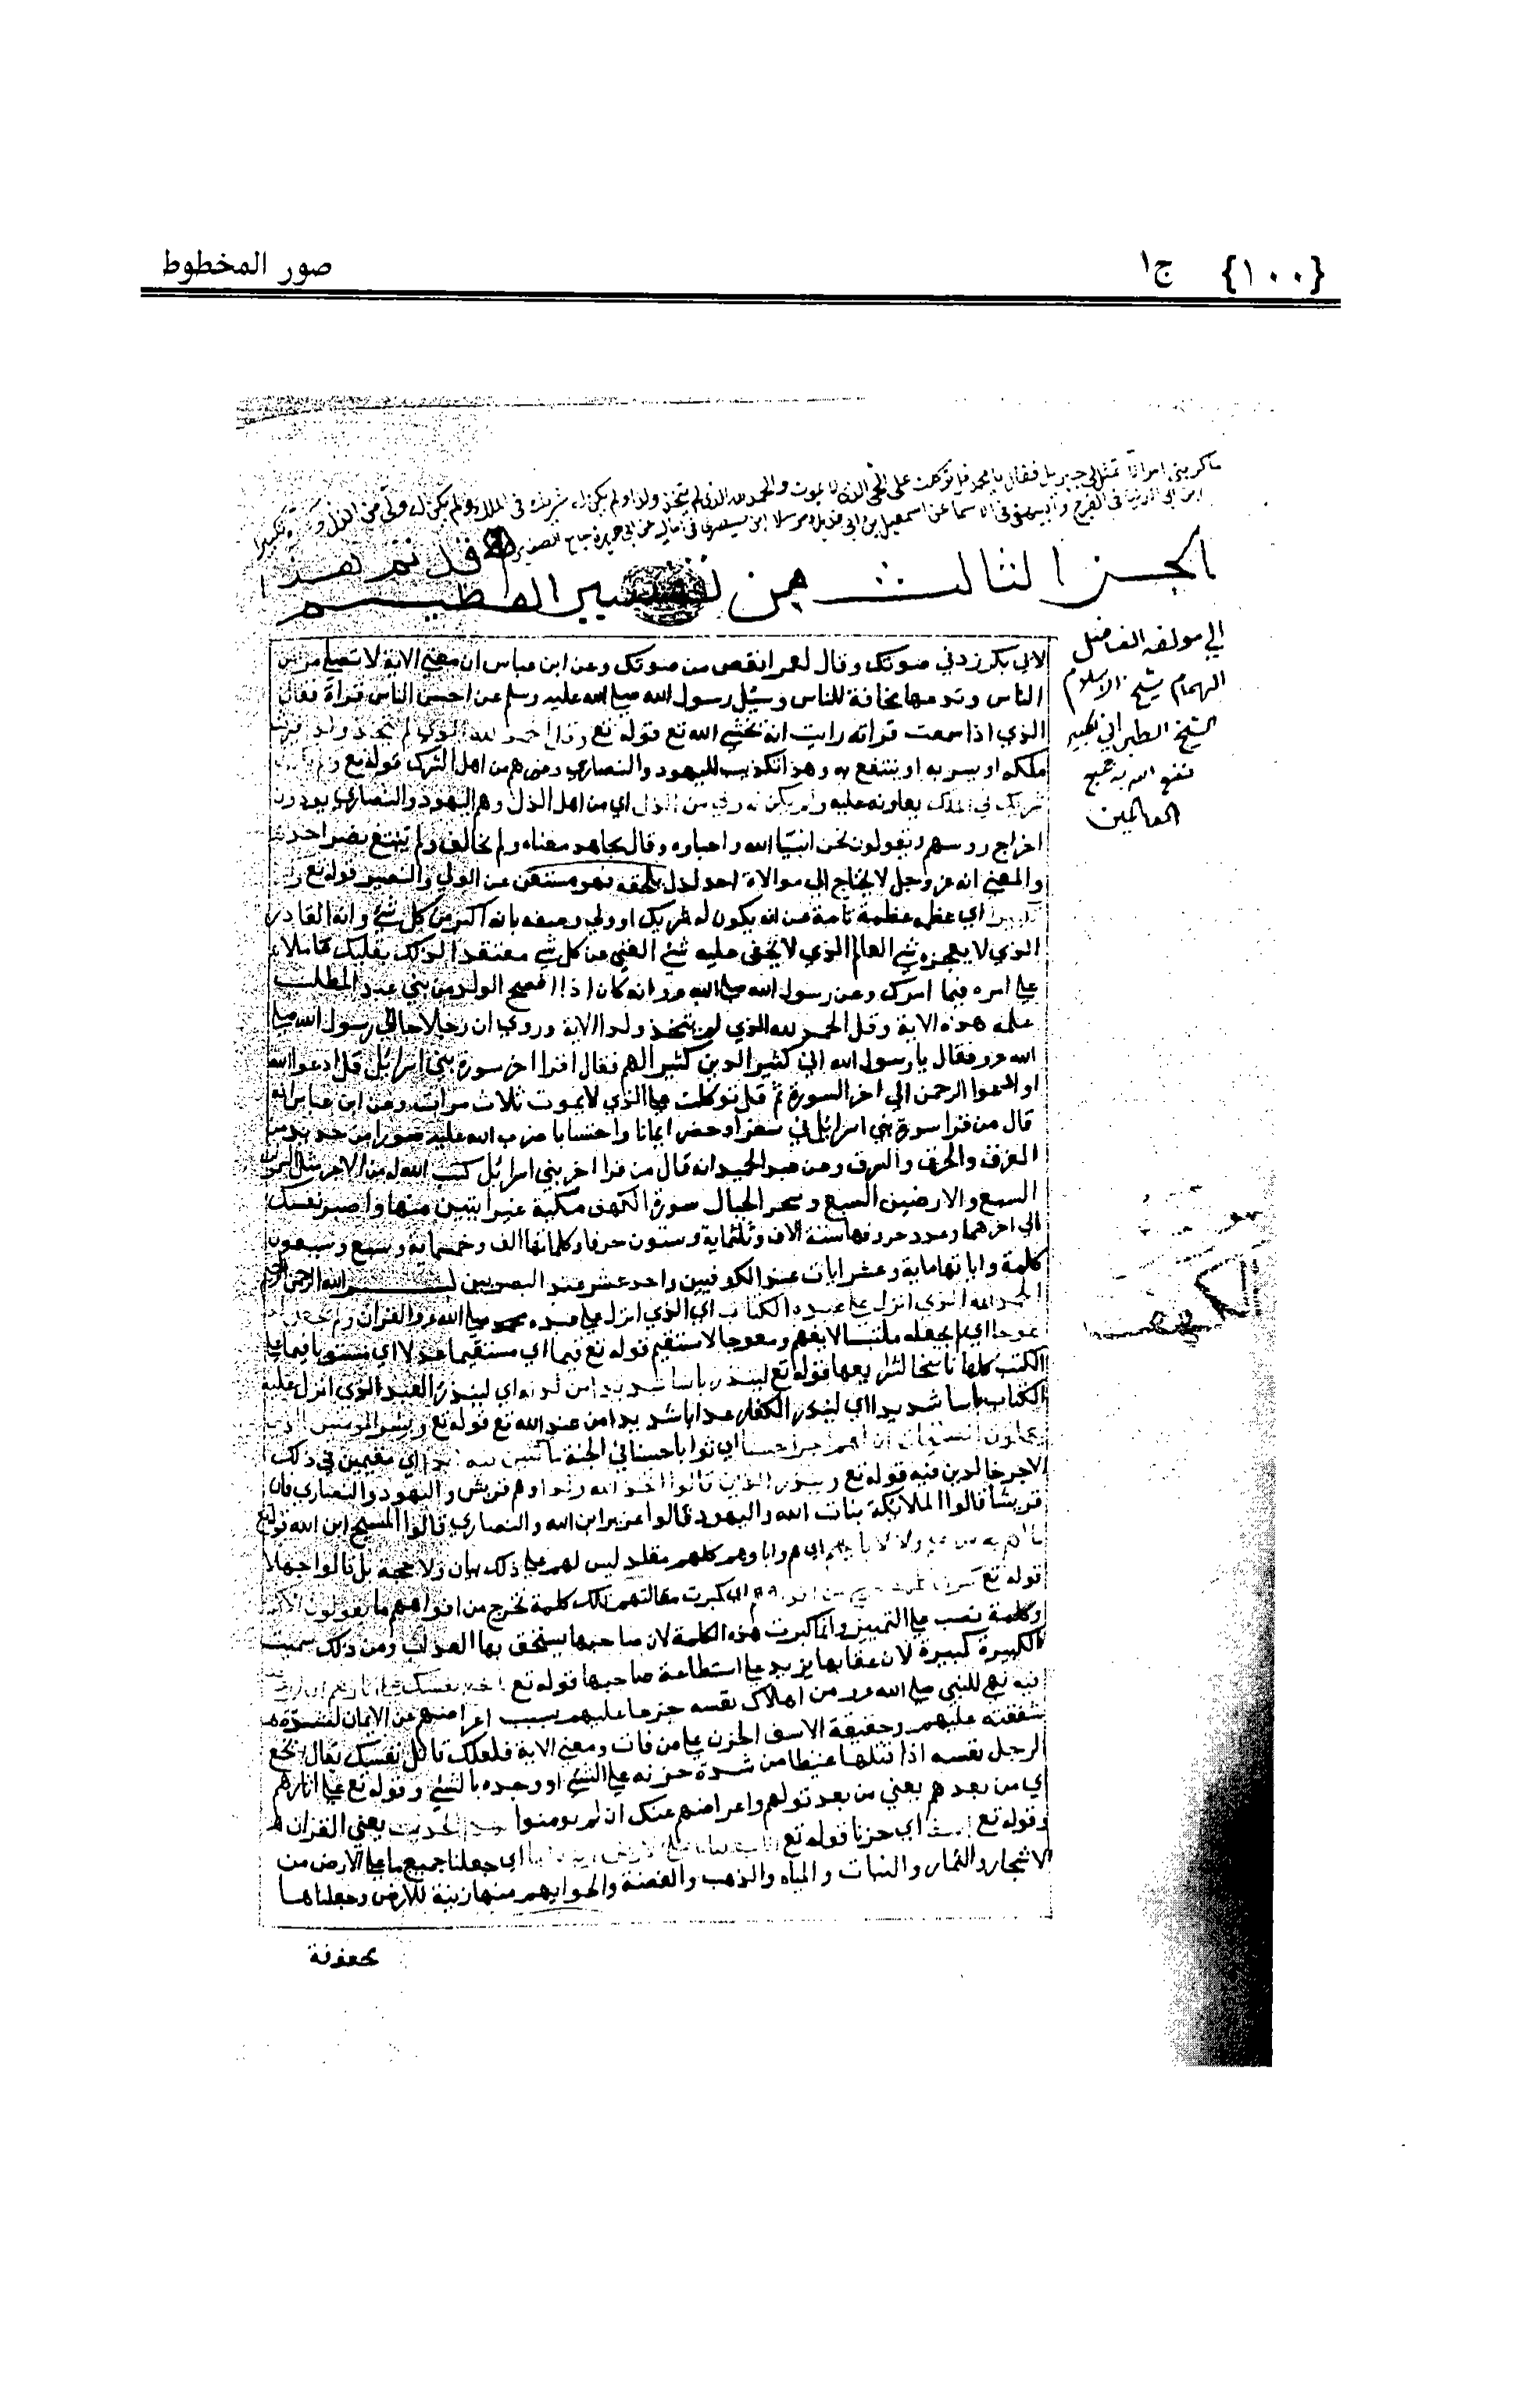 {١٠٠} ج١
صور المخطوط
ما كربني امر الا تمثل لي جبريل فقال يا محمد قل توكلت على الحي الذي لا يموت والحمد لله الذي لم يتخذ ولدا ولم يكن له شريك في الملك ولم يكن له ولي من الذل وكبره تكبيرا
ابن ابي الدنيا في الفرج والبيهقي في الاسما عن اسمعيل بن ابي فديك مرسلا ابن صصرى في اماليه عن ابي هريرة جامع الصغير
قد تم هذا
الجزء الثالث من تفسير العظيم
الي مولفه الفاضل
الهمام شيخ الاسلام
الشيخ الطبراني الكبير
نفع الله به جميع
العالمين
لابي بكر زد في صوتك وقال لعمر انقص من صوتك وعن ابن عباس ان معني الاية لا تصلي
الناس وتدعها مخافة للناس وسئل رسول الله صلي الله عليه وسلم عن احسن الناس قراة فقال
الذي اذا سمعت قراته رايت انه يخشي الله تع قوله تع وقل الحمد لله الذي لم يتخذ ولدا
ملكه او يسر به او ينتفع به وهذا تكذيب لليهود والنصاري ومن هم من اهل الشرك قوله تع ولم يكن
شريك في الملك يعاونه عليه ولم يكن له ولي من الذل اي من اهل الذل وهم اليهود والنصاري
اخراج روسهم ويقولون نحن ابنيا الله واحباوه وقال مجاهد معناه ولم يحالف ولم يبتغ نصر احد
والمعني انه عز وجل لا يحتاج الي موالاة احد لذل يلحقه فهو مستغن عن الولي والنصير قوله تع
اي عظمه عظمة تامة عن ان يكون له شريك او ولي وصفه بانه اكبر من كل شي وانه القادر
الذي لا يعجزه شي العالم الذي لا يخفي عليه شي الغني عن كل شي معتقدا لذلك بقلبك عاملا
علي امره فيما امرك وعن رسول الله صلي الله انه كان اذا افصح الولد من بني عبد المطلب
علمه هذه الاية وقل الحمد لله الذي لم يتخذ ولدا الاية وروي ان رجلا جا الي رسول الله صلي
الله فقال يا رسول الله اني كثير الدين كثير الهم فقال اقرا اخر سورة بني اسرائيل قل ادعوا الله
او ادعوا الرحمن الي اخر السورة ثم قل توكلت علي الذي لا يموت ثلاث مرات وعن ابن عباس انه
قال من قرا سورة بني اسرائيل في سفر او حضر ايمانا واحتسابا ضرب الله عليه سورا من حديد من
الغرق والحرق والسرق وعن عبد الحميد انه قال من قرا اخر بني اسرائيل كتب الله له من الاجر مثل
السبع والارضين السبع الجبال سورة الكهف مكية غير ايتين منها واصبر نفسك
الي اخرهما وعدد حروفها ستة الاف وثلثماية وستون حرفا وكلماتها الف وخمسماية وسبع وسبعون
كلمة واياتها ماية وعشر ايات عند الكوفيين واحد عشر عند البصريين بسم الله الرحمن الرحيم
الحمد لله الذي انزل علي عبده الكتاب اي الذي انزل علي عبده محمد صلي الله القران ولم يجعل له
عوجا اي لم يجعله ملتبسا لا يفهم ومعوجا لا يستقيم قوله تع قيما اي مستقيما عدلا اي مستويا قيما علي
الكتب كلها ناسخا لشرايعها قوله تع لينذر باسا شديدا من لدنه اي لينذر العبد الذي انزل عليه
الكتاب باسا شديدا اي لينذر الكفار عذابا شديدا من عند الله تع قوله تع ويبشر المومنين الذين
يعملون الصالحات ان لهم اجرا حسنا اي ثوابا حسنا في الجنة ماكثين فيه ابدا اي مقيمين في ذلك
الاجر خالدين فيه قوله تع وينذر الذين قالوا اتخذ الله ولدا وهم قريش واليهود والنصاري فان
قريشا قالوا الملايكة بنات الله واليهود قالوا عزير ابن الله والنصاري قالوا المسيح ابن الله قوله تع
ما لهم به من علم ولا لابايهم اي هم واباوهم كلهم مقلد ليس لهم علي ذلك بيان ولا حجة بل قالوا جهلا
قوله تع كبرت كلمة تخرج من افواههم اي كبرت مقالتهم تلك كلمة تخرج من افواههم ما يقولون
وكلمة نصب علي التمييز وانما كبرت هذه الكلمة لان صاحبها يستحق بها العذاب ومن ذلك سميت
الكبيرة كبيرة لان عقابها يزيد علي استطاعة صاحبها قوله تع
فيه نهي للنبي صلي الله من اهلاك نفسه حزما عليهم بسبب اعراضهم عن الايمان لشدة
شفقته عليهم وحقيقة الاسف الحزن علي من فات ومعني الاية فلعلك قاتل نفسك يقال بخع
الرجل نفسه اذا قتلها غيظا من شدة حزنه علي الشي او وجده بالشي وقوله تع علي اثارهم
اي من بعدهم يعني من بعد توليهم واعراضهم عنك ان لم يومنوا بهذا الحديث يعني القران
وقوله تع اسفا اي حزنا قوله تع انا جعلنا ما علي الارض زينة لها اي جعلنا جميع ما علي الارض من
الاشجار والثمار والنبات والمياه والذهب والفضة والجواهر منها زينة للارض وجعلناها
محفوفة
الكهف